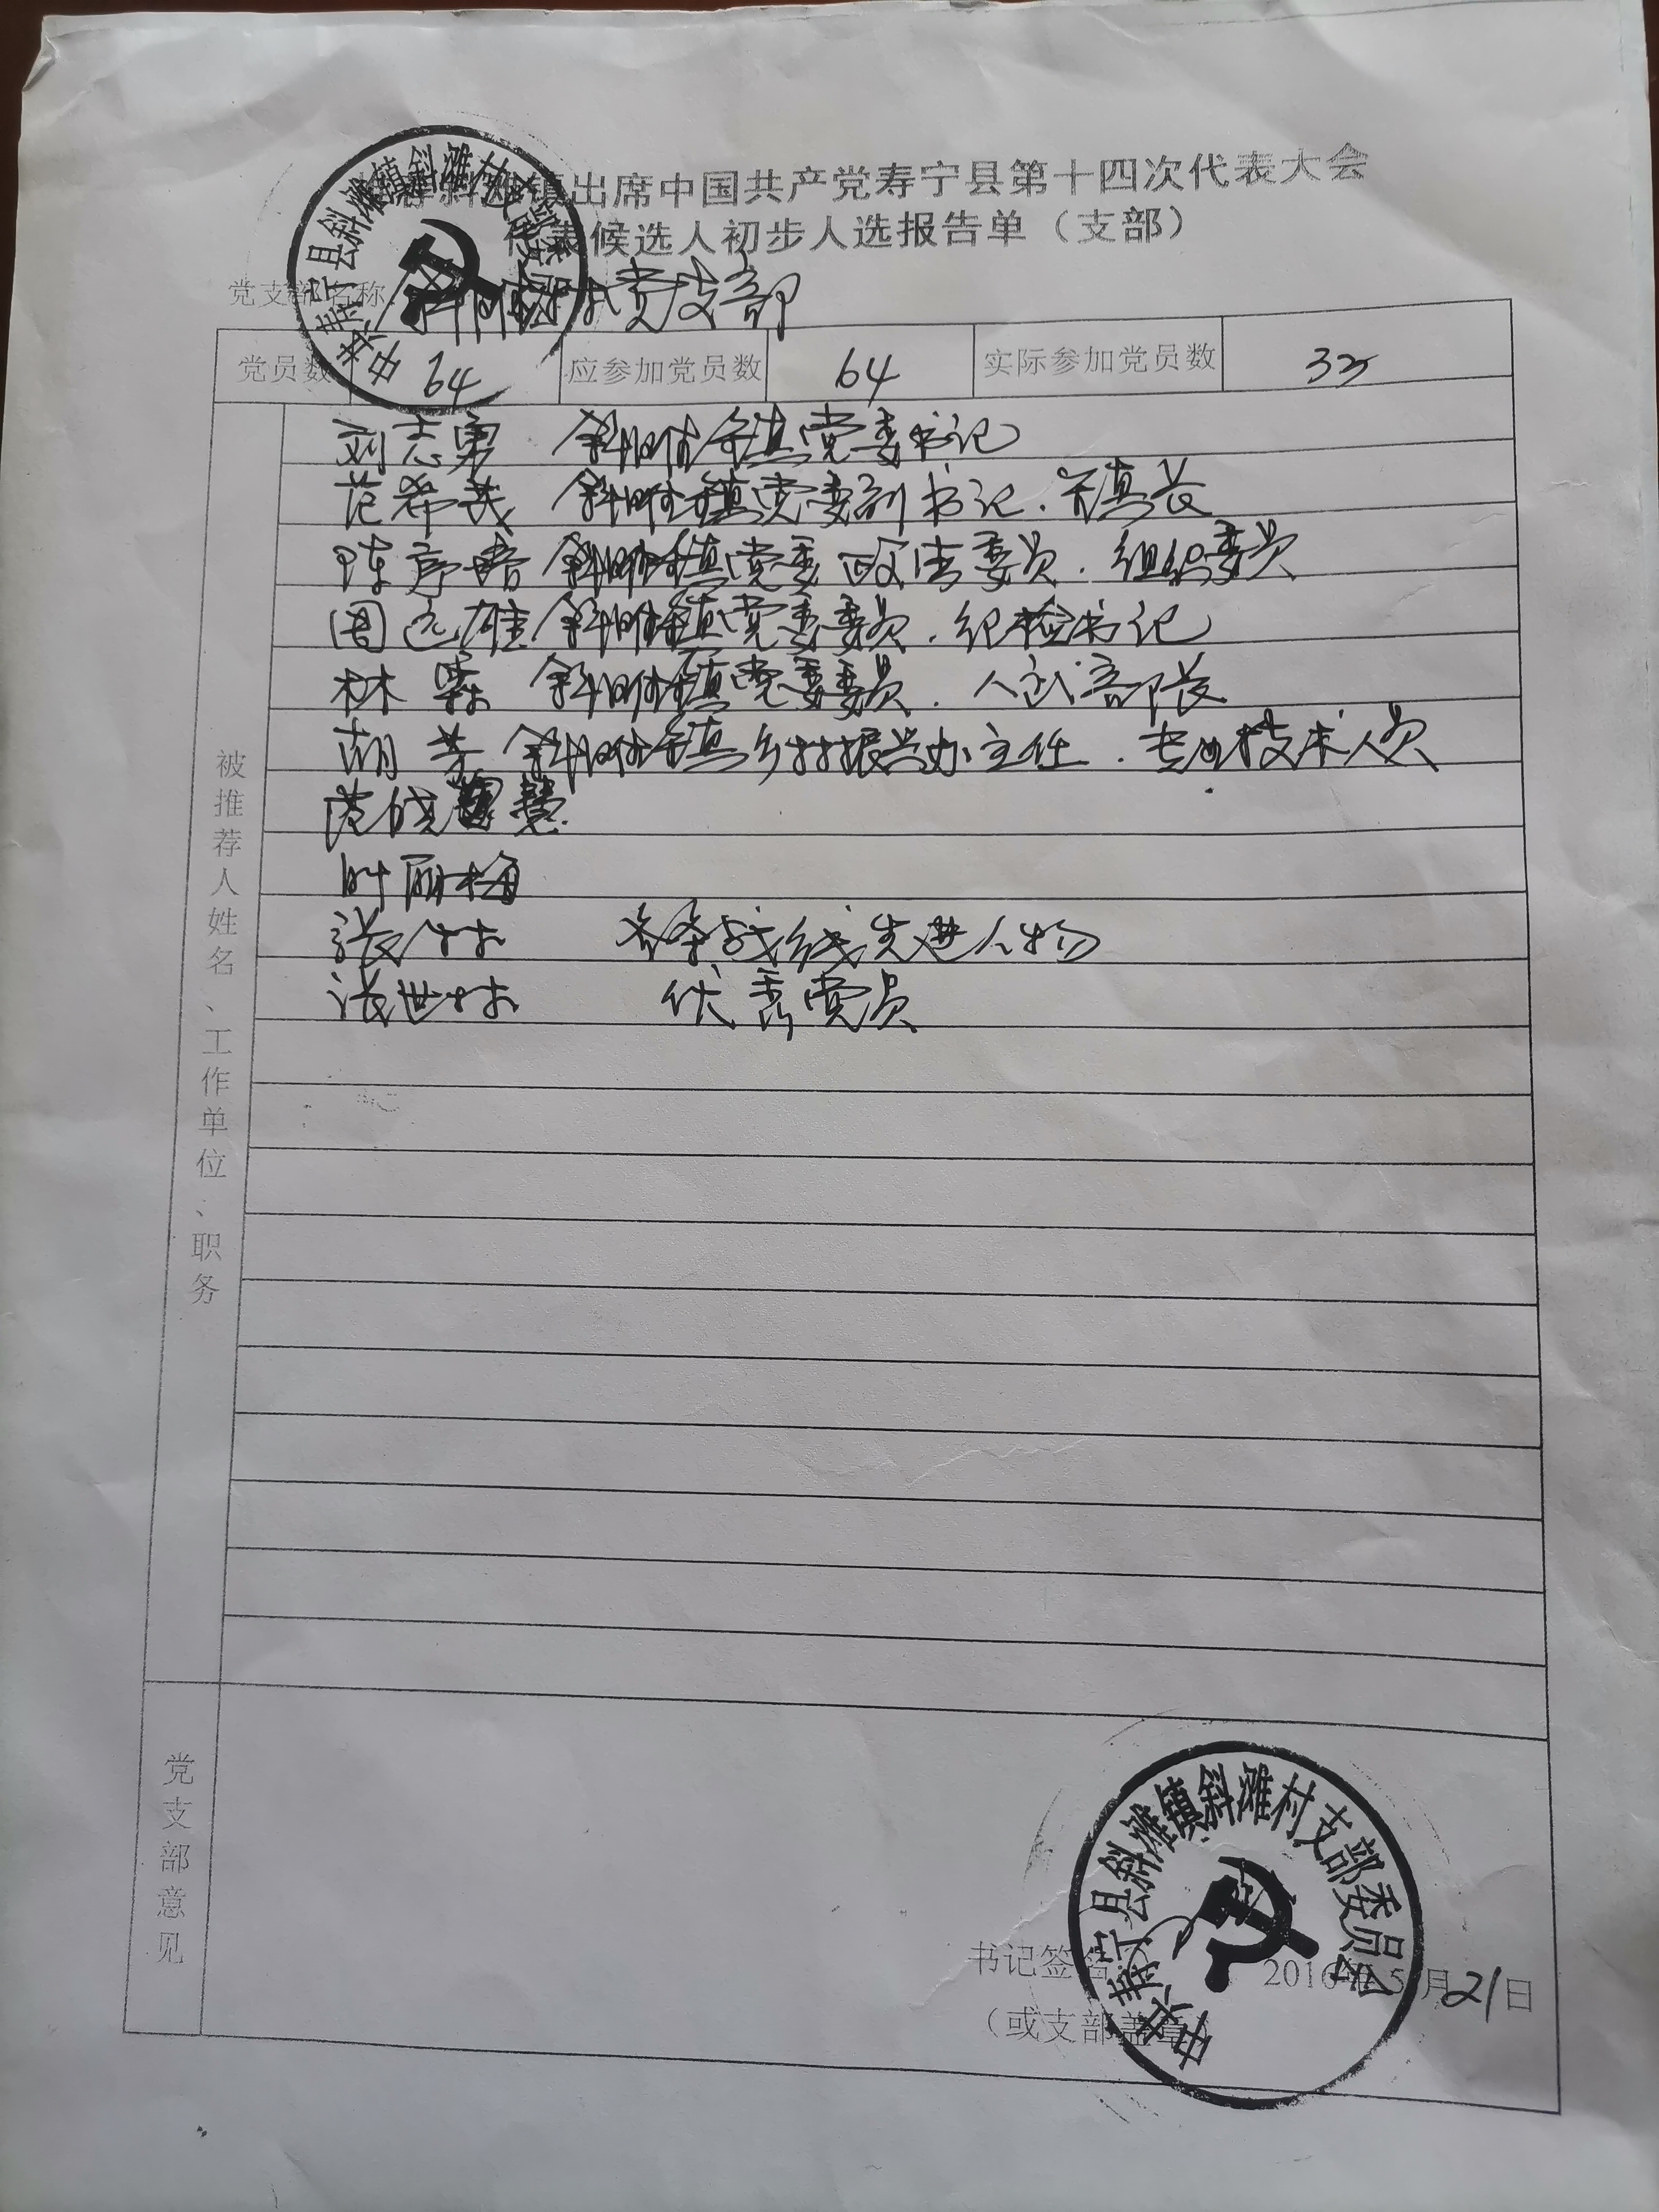 斜滩镇出席中国共产党寿宁县第十四次代表大会
代表候选人初步人选报告单（支部）
党支部名称 斜滩村党支部
党员数 64 应参加党员数 64 实际参加党员数 33
被推荐人姓名、工作单位、职务
刘志勇 斜滩镇党委书记
范希武 斜滩镇党委副书记、镇长
陈彦 斜滩镇党委政法委员、组织委员
周远雄 斜滩镇党委委员、纪检书记
林森 斜滩镇党委委员、人武部长
胡芳 斜滩镇乡村振兴办主任、专业技术人员
范晓慧
叶丽梅
张林 各条战线先进人物
张世林 优秀党员
党支部意见
书记签名
2016年5月21日
（或支部盖章）
中共寿宁县斜滩镇斜滩村支部委员会
中共寿宁县斜滩镇斜滩村支部委员会